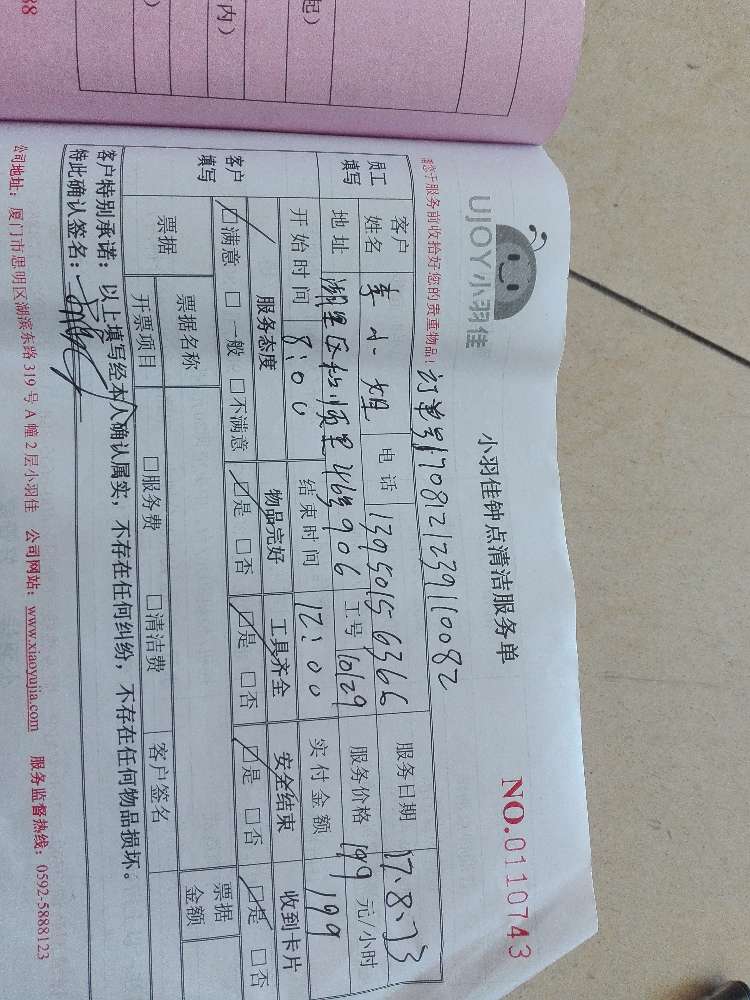 88
）
内）
起）
UJOY小羽佳
小羽佳钟点清洁服务单
NO.0110743
请您于服务前收拾好您的贵重物品！
订单号1708121239110082
员工填写 客户姓名 李小姐 电话 13950156366 服务日期 17.8.23
地址 湖里区 463 906 工号 10129 服务价格 199 元/小时
开始时间 8:00 结束时间 12:00 实付金额 199
客户填写 服务态度 物品完好 工具齐全 安全结束 收到卡片
☑满意 □一般 □不满意 ☑是 □否 ☑是 □否 ☑是 □否 ☑是 □否
票据 票据名称 票据金额
开票项目 □服务费 □清洁费 客户签名
客户特别承诺：以上填写经本人确认属实，不存在任何纠纷，不存在任何物品损坏。
特此确认签名：
公司地址：厦门市思明区湖滨东路319号A幢2层小羽佳 公司网站：www.xiaoyujia.com 服务监督热线：0592-5888123